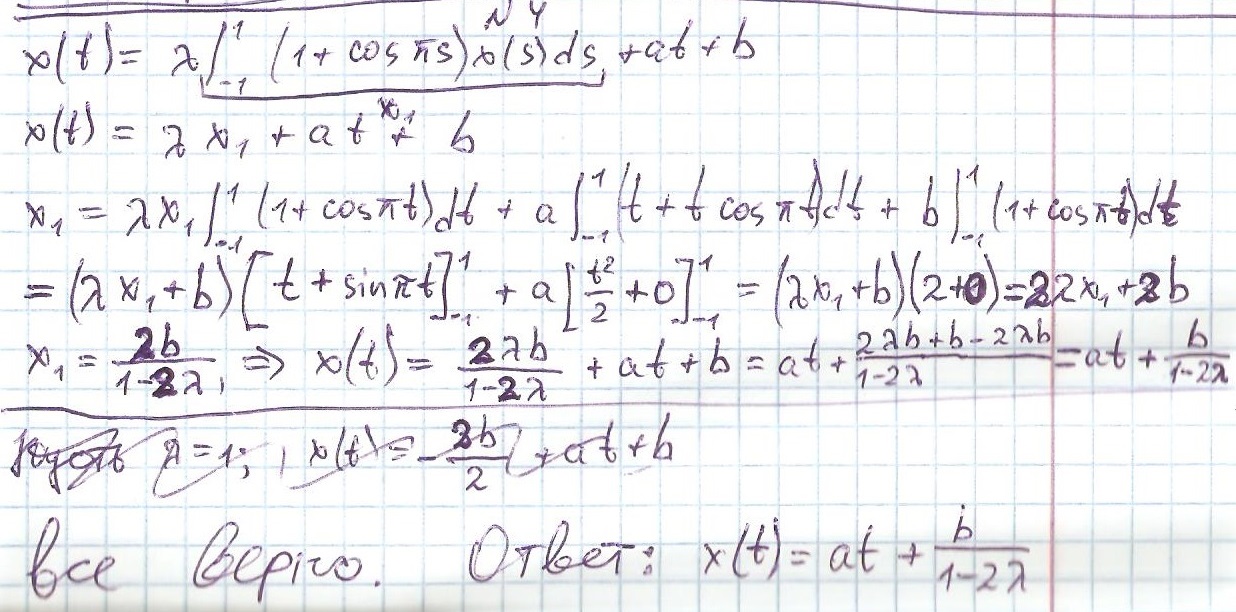 № 4
x(t) = λ∫₋₁¹ (1 + cos πs) x(s) ds + at + b
x₁
x(t) = λ x₁ + at + b
x₁ = λx₁ ∫₋₁¹ (1 + cos πt) dt + a ∫₋₁¹ (t + t cos πt) dt + b ∫₋₁¹ (1 + cos πt) dt
= (λ x₁ + b) [t + sin πt]₋₁¹ + a [t²/2 + 0]₋₁¹ = (λx₁ + b)(2+0) = 2λx₁ + 2b
x₁ = 2b/(1-2λ), ⇒ x(t) = 2λb/(1-2λ) + at + b = at + (2λb + b - 2λb)/(1-2λ) = at + b/(1-2λ)
Пусть λ = 1; x(t) = -2b/2 + at + b
все верно. Ответ: x(t) = at + b/(1-2λ)